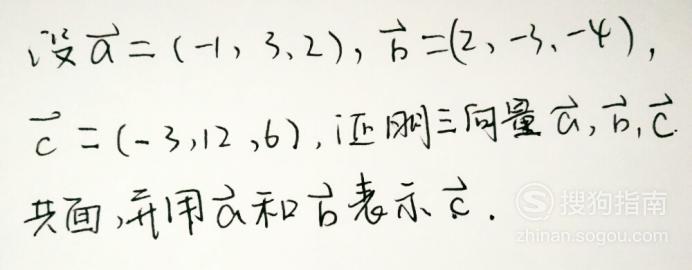 设 a⃗ = (-1, 3, 2), b⃗ = (2, -3, -4),
c⃗ = (-3, 12, 6), 证明三向量 a⃗, b⃗, c⃗
共面, 并用 a⃗ 和 b⃗ 表示 c⃗.
S 搜狗指南
zhinan.sogou.com